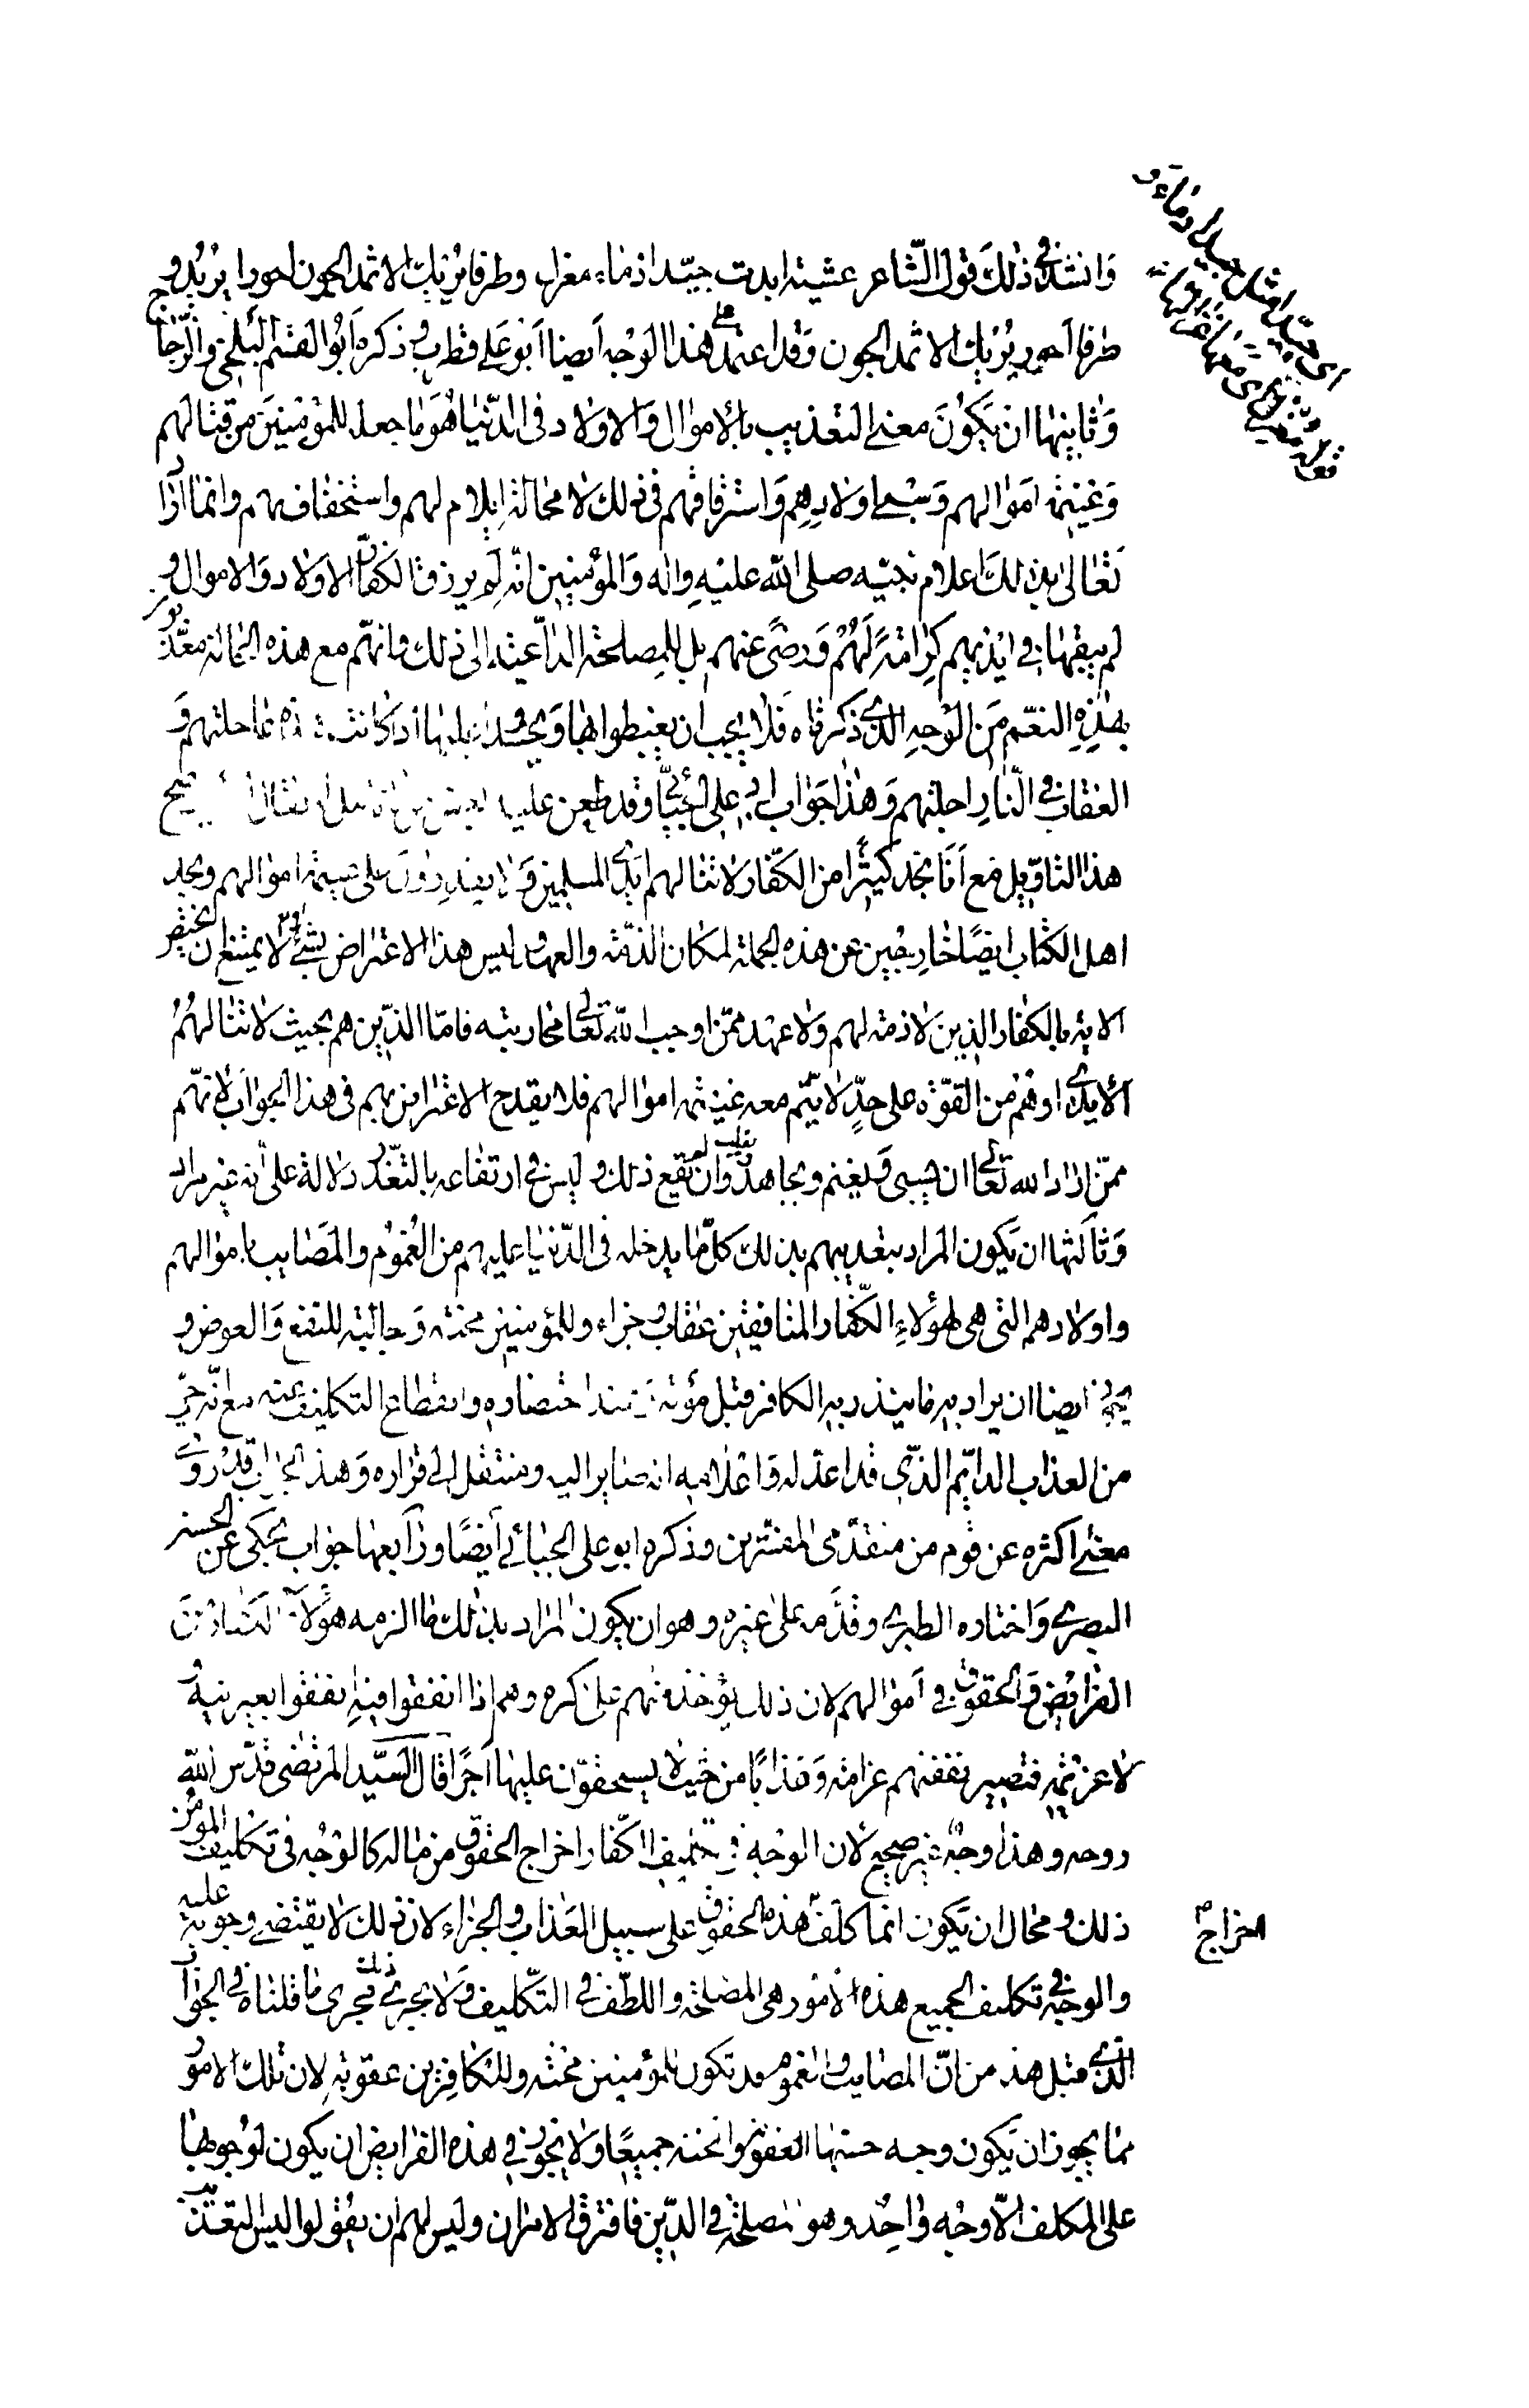 وانشد في ذلك قول الشاعر عشية ابدت جيد ادماء مغزل وطرفا يريك الاثمد الجون احورا يريد و
طرفا احور يريك الاثمد الجون وقد اعتمد على هذا الوجه ايضا ابو علي قطرب وذكره ابو القسم البلخي والزجاج
وثانيها ان يكون معنى التعذيب بالاموال والاولاد في الدنيا هو ما جعله للمؤمنين من قتالهم
وغنيمة اموالهم وسبي اولادهم واسترقاقهم في ذلك لا محالة ايلام لهم واستخفاف بهم وانما اراد
تعالى بذلك اعلام نبيه صلى الله عليه واله والمؤمنين انه لم يرزق الكفار الاولاد والاموال و
لم يبقها في ايديهم كرامة لهم ورضى عنهم بل للمصلحة الداعية الى ذلك وانهم مع هذه الحالة معذبون
بهذه النعم من الوجه الذي ذكرناه فلا يجب ان يغبطوا بها ويحسدوا عليها اذ كانت هذه عاجلتهم و
العقاب في النار اجلتهم وهذا جواب ابي علي الجبائي وقد طعن عليه
هذا التاويل مع انا نجد كثيرا من الكفار لا تنالهم ايدي المسلمين ولا يقدرون على غنيمة اموالهم ونجد
اهل الكتاب ايضا خارجين عن هذه الجملة لمكان الذمة والعهد وليس هذا الاعتراض بشيء لانه لا يمتنع ان تختص
الاية بالكفار الذين لا ذمة لهم ولا عهد ممن اوجب الله تعالى محاربته فاما الذين هم بحيث لا تنالهم
الايدي او هم من القوة على حد لا يتم معه غنيمة اموالهم فلا يقدح الاعتراض بهم في هذا الجواب لانهم
ممن اراد الله تعالى ان يسبى ويغنم ويجاهد ويغلب وان لم يقع ذلك وليس في ارتفاعه بالتعذر دلالة على انه غير مراد
وثالثها ان يكون المراد بتعذيبهم بذلك كل ما يدخله في الدنيا عليهم من الغموم والمصايب باموالهم
واولادهم التي هي لهؤلاء الكفار المنافقين عقاب وجزاء وللمؤمنين محنة وجالبة للنفع والعوض و
يجوز ايضا ان يراد به ما ينذر به الكافر قبل موته عند احتضاره وانقطاع التكليف عنه مع انه حي
من العذاب الدايم الذي قد اعد له واعلامه انه صاير اليه ومنتقل الى قراره وهذا الجواب قد روي
معنى اكثره عن قوم من متقدمي المفسرين وذكره ابو علي الجبائي ايضا ورابعها جواب يحكى عن الحسن
البصري واختاره الطبري وقدمه على غيره وهو ان يكون المراد بذلك ما الزمه هؤلاء الكفار من
الفرايض والحقوق في اموالهم لان ذلك يؤخذ منهم على كره وهم اذا انفقوا فيه انفقوا بغير نية و
لا عزيمة فتصير نفقتهم غرامة وعذابا من حيث لا يستحقون عليها اجرا قال السيد المرتضى قدس الله
روحه وهذا وجه غير صحيح لان الوجه في تكليف الكفار اخراج الحقوق من ماله كالوجه في تكليف المؤمن
ذلك ومحال ان يكون انما كلف هذه الحقوق على سبيل العذاب والجزاء لان ذلك لا يقتضي وجوبه عليه
والوجه في تكليف الجميع هذه الامور هي المصلحة واللطف في التكليف ولا يجري ذلك مجرى ما قلناه في الجواب
الذي قبل هذا من ان المصايب والغموم قد تكون للمؤمنين محنة وللكافرين عقوبة لان تلك الامور
مما يجوز ان يكون وجه حسنها العقوبة والمحنة جميعا ولا يجوز في هذه الفرايض ان يكون لوجوبها
على المكلف الا وجه واحد وهو المصلحة في الدين فافترق الامران وليس لهم ان يقولوا ليس التعذيب
اخراج